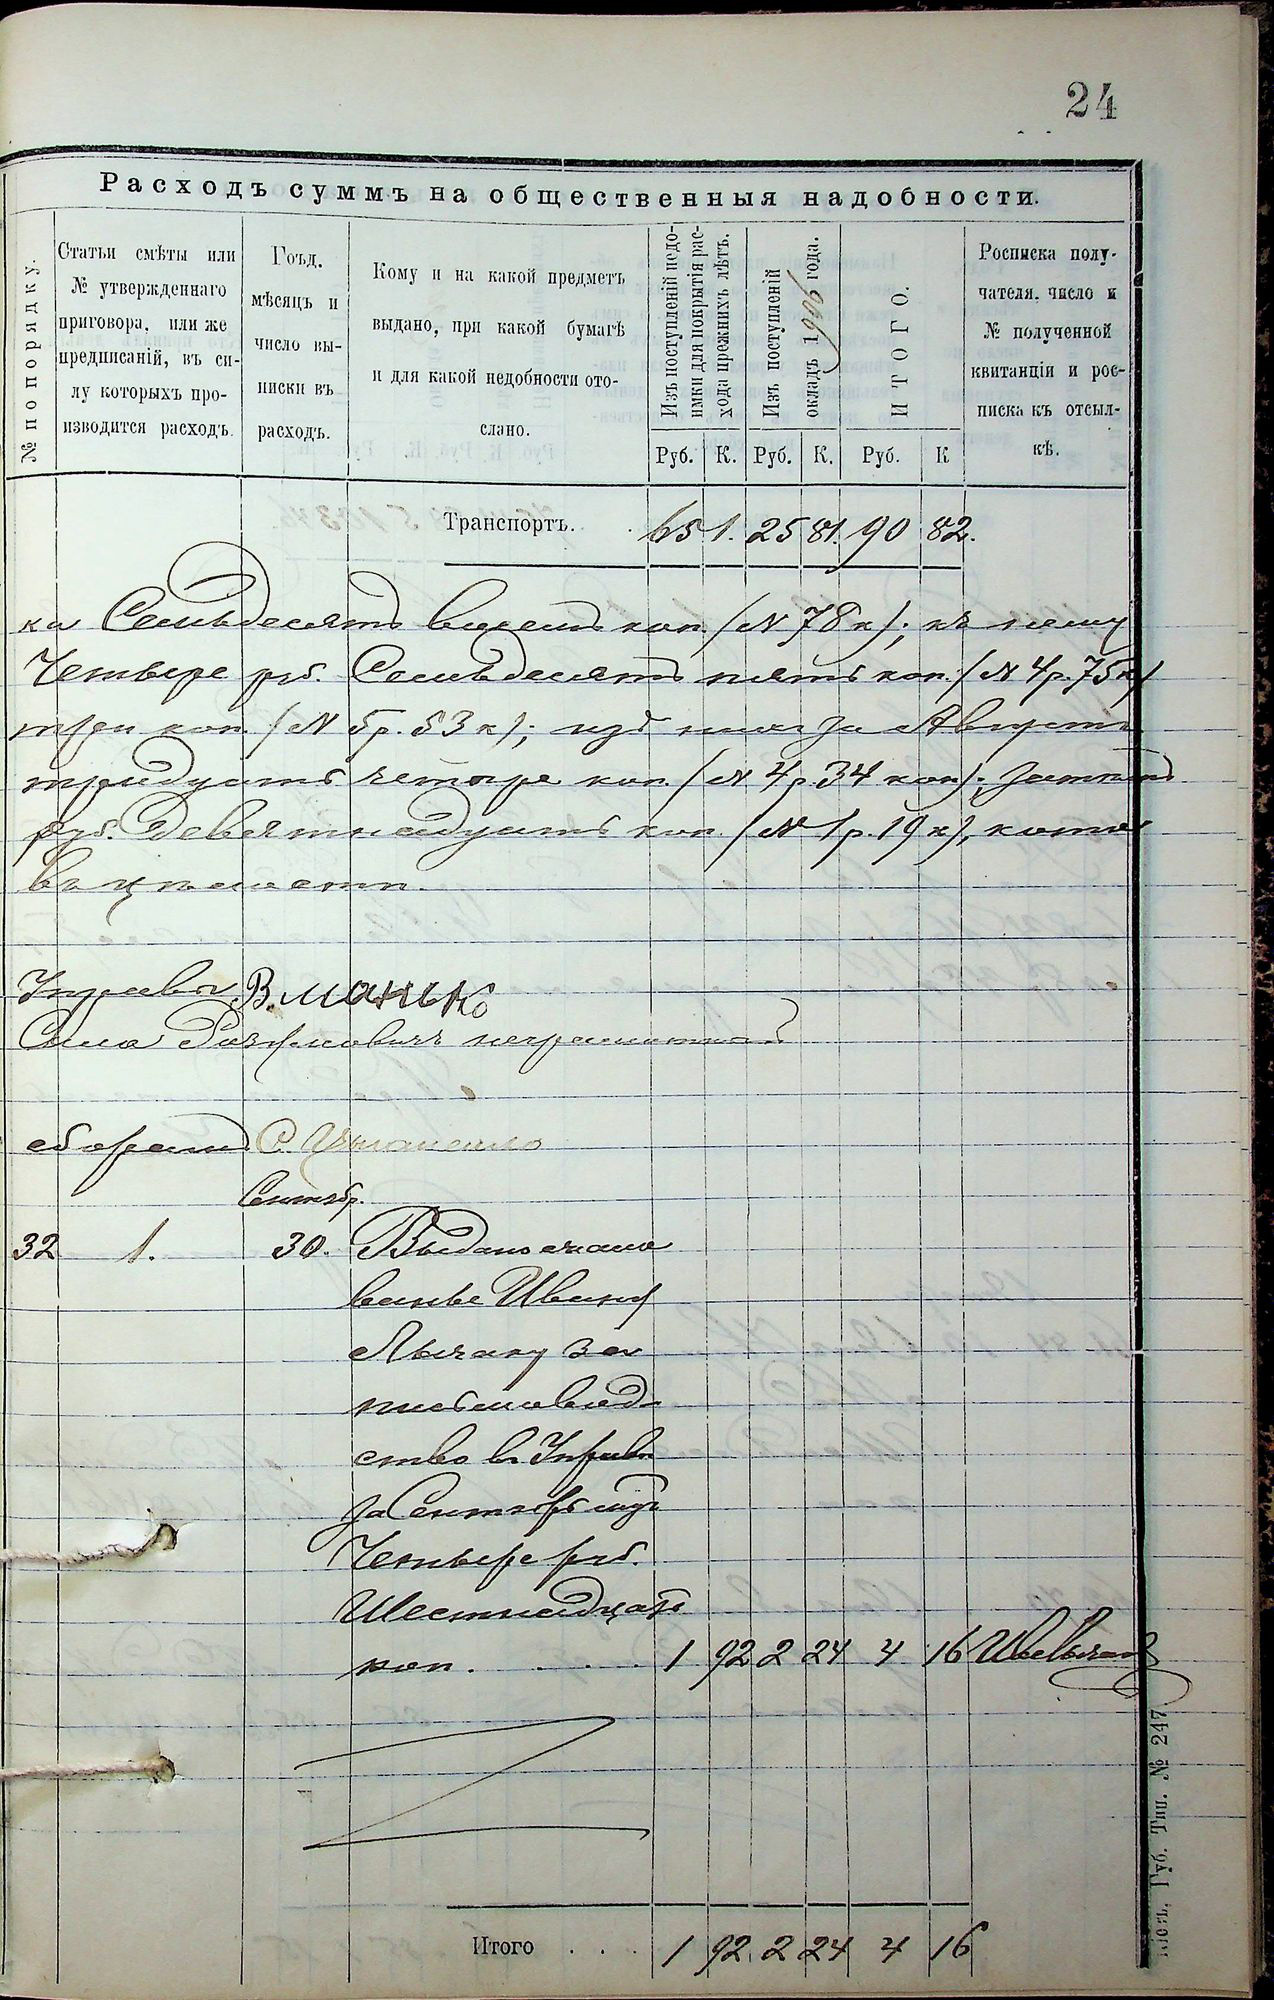 24
Расходъ суммъ на общественныя надобности.
№ по порядку.
Статьи смѣты или
№ утвержденнаго
приговора, или же
предписаній, въ си-
лу которыхъ про-
изводится расходъ.
Гоъд.
мѣсяцъ и
число вы-
писки въ
расходъ.
Кому и на какой предметъ
выдано, при какой бумагѣ
и для какой недобности ото-
слано.
Изъ поступленій недо-
имки для покрытія рас-
хода прежнихъ лѣтъ.
Изъ поступленій
окладъ 1906 года.
ИТОГО.
Росписка полу-
чателя, число и
№ полученной
квитанціи и рос-
писка къ отсыл-
кѣ.
Руб. К. Руб. К. Руб. К
Транспортъ. 65 1. 25 81. 90 82.
ка Семьдесятъ восемь коп. (№ 78 к); къ нему
Четыре руб. Семьдесятъ пять коп. (№ 4 р. 75 к)
три коп. (№ 5 р. 53 к); изъ нихъ за Августъ
тридцать четыре коп. (№ 4 р. 34 коп);
руб. Девятнадцать коп. (№ 1 р. 19 к),
въ цѣлости.
Управы В. Манько
Сила неграмотный
сборщикъ С.
Сентябр.
32 1. 30. Выдано
Ивану
Лычаку за
письмовод-
ство въ Управѣ
за Сентябрь
Четыре руб.
Шестнадцать
коп. . . . . 1 92 2 24 4 16
Итого . . . 1 92 2 24 4 16
Губ. Тип. № 247